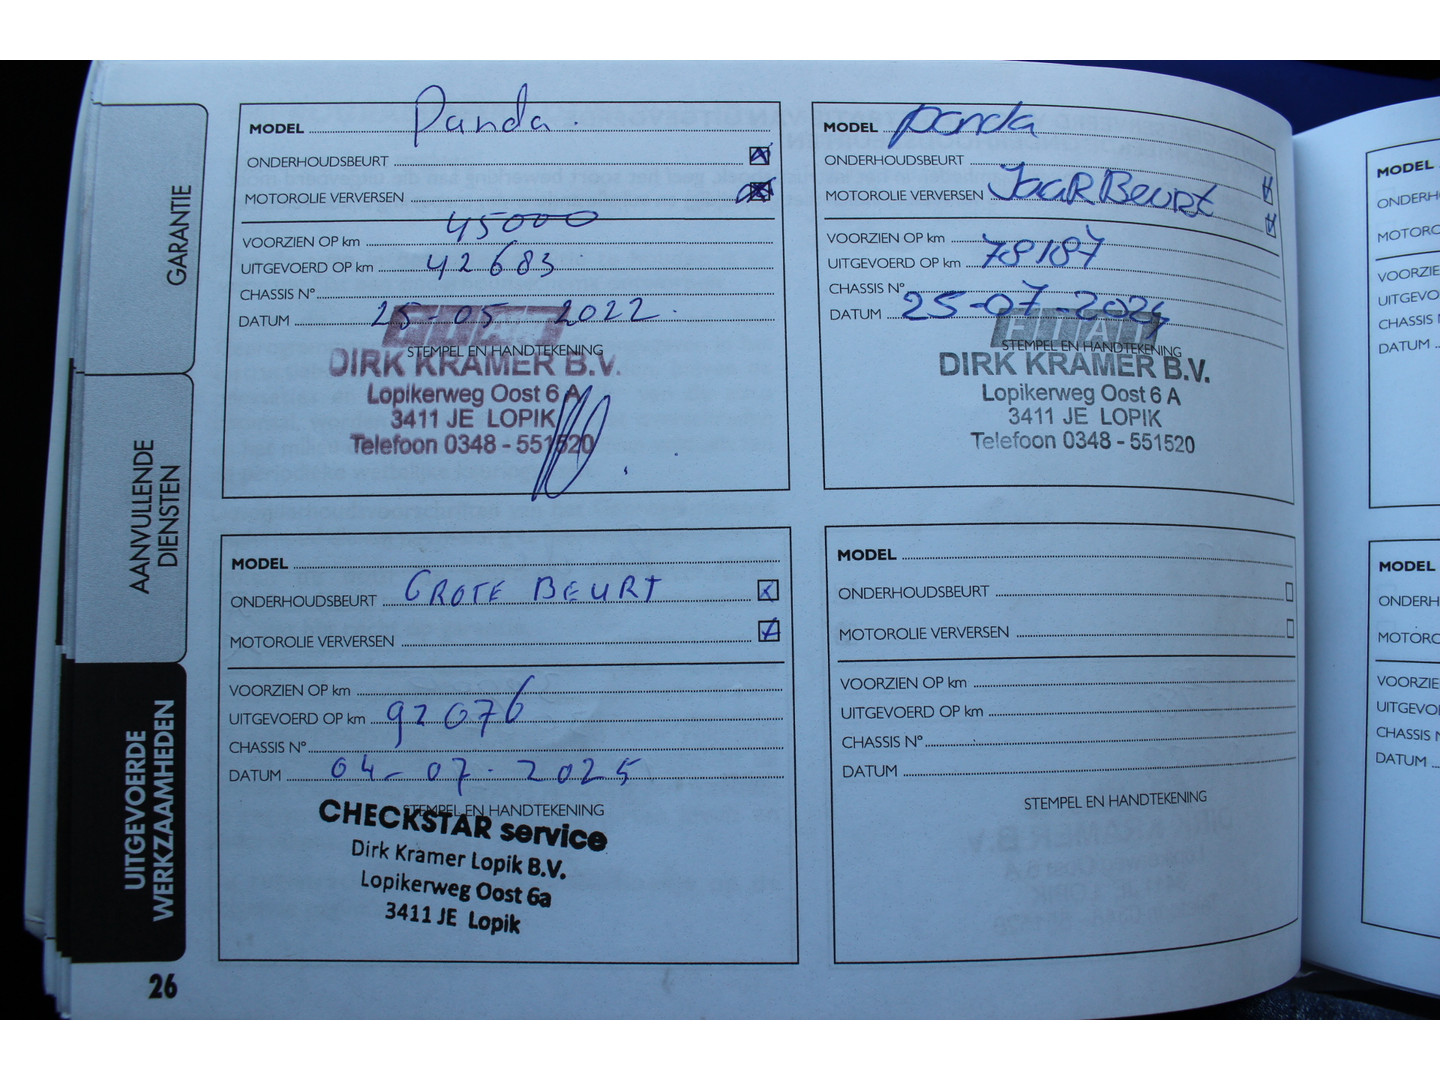 GARANTIE
AANVULLENDE
DIENSTEN
UITGEVOERDE
WERKZAAMHEDEN
26
MODEL Panda.
ONDERHOUDSBEURT
MOTOROLIE VERVERSEN
VOORZIEN OP km 45000
UITGEVOERD OP km 42683
CHASSIS N°
DATUM 25-05-2022.
FIAT
STEMPEL EN HANDTEKENING
DIRK KRAMER B.V.
Lopikerweg Oost 6 A
3411 JE LOPIK
Telefoon 0348 - 551520
MODEL panda
ONDERHOUDSBEURT
MOTOROLIE VERVERSEN JAARBEURT
VOORZIEN OP km
UITGEVOERD OP km 78187
CHASSIS N°
DATUM 25-07-2024
FIAT
STEMPEL EN HANDTEKENING
DIRK KRAMER B.V.
Lopikerweg Oost 6 A
3411 JE LOPIK
Telefoon 0348 - 551520
MODEL
ONDERHOUDSBEURT GROTE BEURT
MOTOROLIE VERVERSEN
VOORZIEN OP km
UITGEVOERD OP km 92076
CHASSIS N°
DATUM 04-07-2025
STEMPEL EN HANDTEKENING
CHECKSTAR service
Dirk Kramer Lopik B.V.
Lopikerweg Oost 6a
3411 JE Lopik
MODEL
ONDERHOUDSBEURT
MOTOROLIE VERVERSEN
VOORZIEN OP km
UITGEVOERD OP km
CHASSIS N°
DATUM
STEMPEL EN HANDTEKENING
MODEL
ONDERH
MOTORO
VOORZIE
UITGEVO
CHASSIS N
DATUM
MODEL
ONDERH
MOTORO
VOORZIE
UITGEVO
CHASSIS N
DATUM